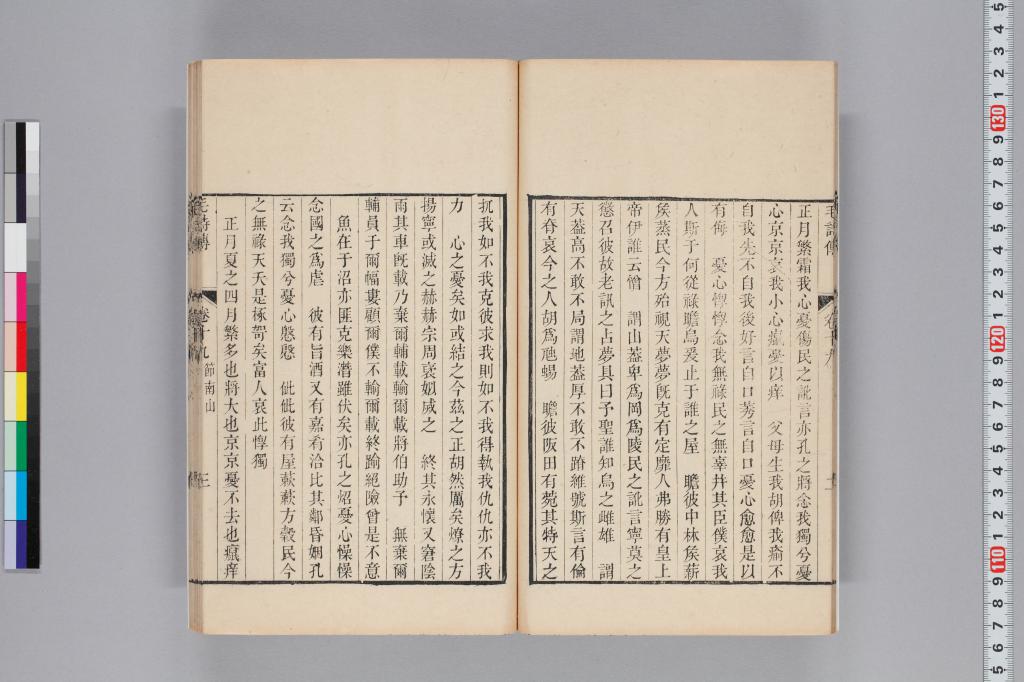 正月繁霜我心憂傷民之訛言亦孔之將念我獨兮憂
心京京哀我小心癙憂以痒　父母生我胡俾我瘉不
自我先不自我後好言自口莠言自口憂心愈愈是以
有侮　憂心惸惸念我無祿民之無辜幷其臣僕哀我
人斯于何從祿瞻烏爰止于誰之屋　瞻彼中林矦薪
矦蒸民今方殆視天夢夢旣克有定靡人弗勝有皇上
帝伊誰云憎　謂山葢卑爲岡爲陵民之訛言寧莫之
懲召彼故老訊之占夢具曰予聖誰知烏之雌雄　謂
天葢高不敢不局謂地葢厚不敢不蹐維號斯言有倫
有脊哀今之人胡爲虺蜴　瞻彼阪田有菀其特天之
扤我如不我克彼求我則如不我得執我仇仇亦不我
力　心之憂矣如或結之今茲之正胡然厲矣燎之方
揚寧或滅之赫赫宗周褒姒烕之　終其永懷又窘陰
雨其車旣載乃棄爾輔載輸爾載將伯助予　無棄爾
輔員于爾輻屢顧爾僕不輸爾載終踰絕險曾是不意
魚在于沼亦匪克樂潛雖伏矣亦孔之炤憂心懆懆
念國之爲虐　彼有旨酒又有嘉肴洽比其鄰昏姻孔
云念我獨兮憂心慇慇　佌佌彼有屋蔌蔌方穀民今
之無祿天夭是椓哿矣富人哀此惸獨
正月夏之四月繁多也將大也京京憂不去也癙痒
毛詩傳
卷十九
節南山
三